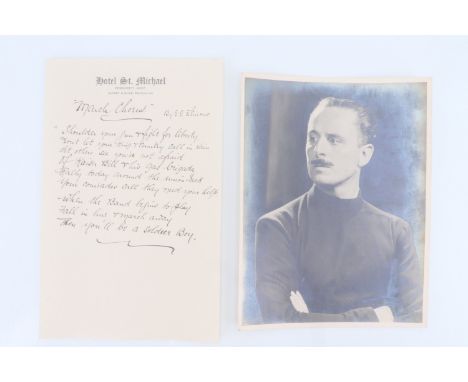 Hotel St. Michael
"March Chorus"
By E.E.
"Shoulder your gun & fight for liberty
Don't let your King & Country call in vain
Let others see you're not afraid
Of Kaiser Bill & his
Rally today around the Union Jack
Your comrades call they need your help
When the Band begins to play
Fall in line & march away
Then you'll be a soldier Boy.